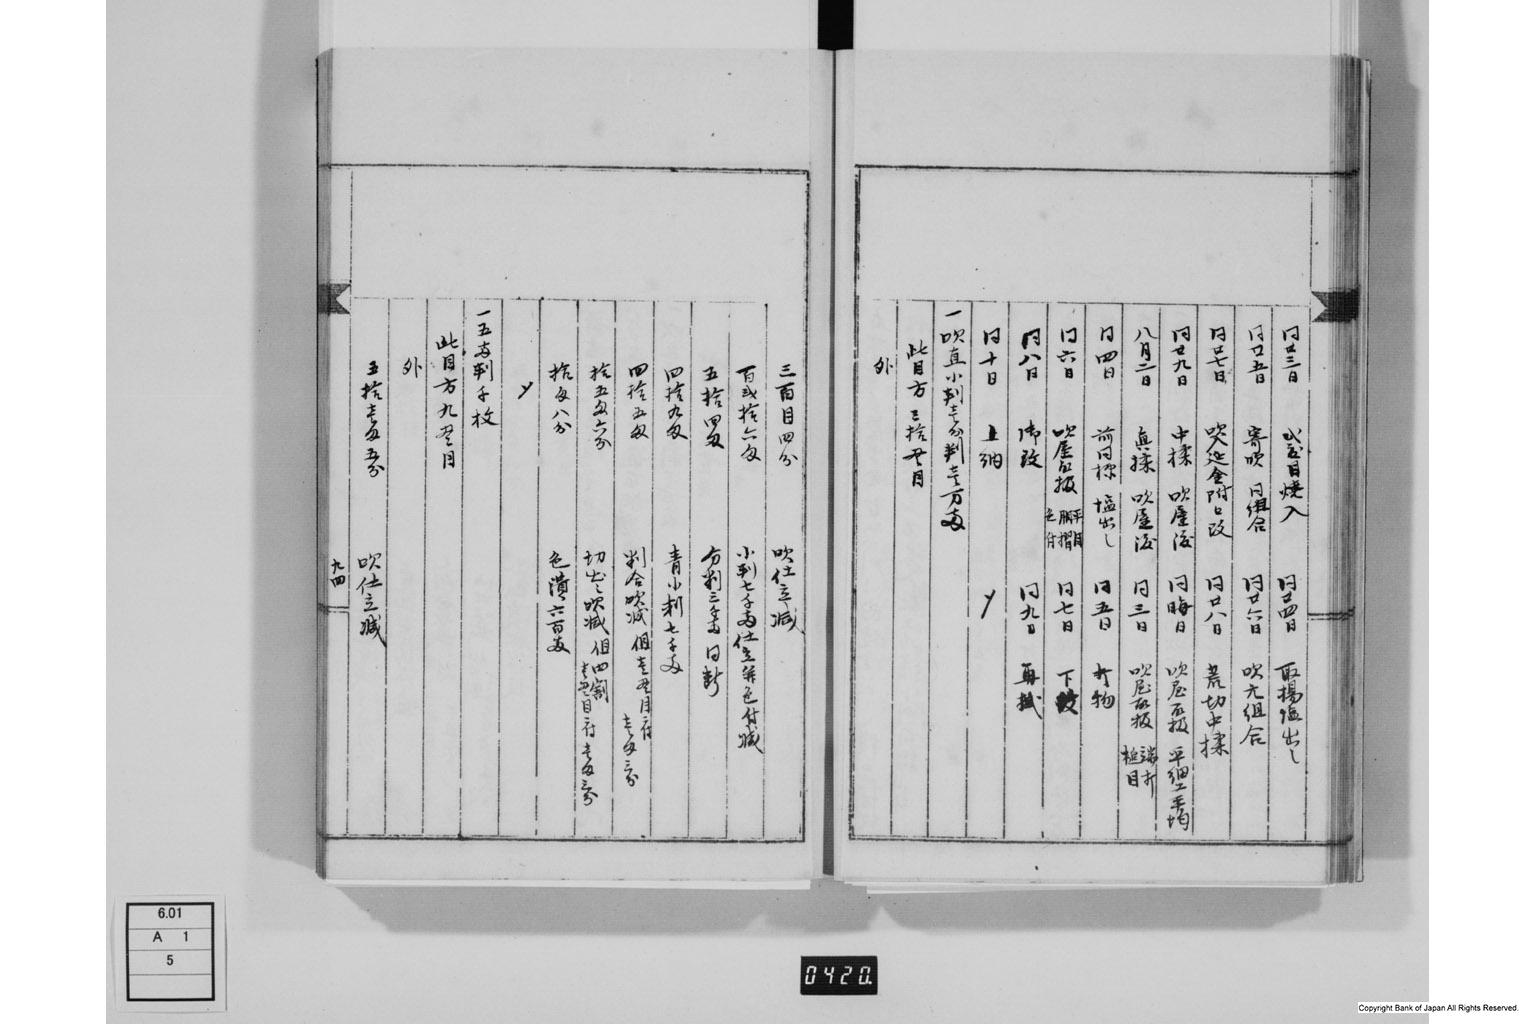 同廿三日 弐番目焼入 同廿四日 取揚塩出し
同廿五日 寄吹 同組合 同廿六日 吹元組合
同廿七日 吹入延金附口改 同廿八日 荒切中揉
同廿九日 中揉 吹屋後 同晦日 吹屋取扱 平細工平均
八月二日 真揉 吹屋後 同三日 吹屋取扱 端打 槌目
同四日 前同様 塩出し 同五日 打物
同六日 吹屋取扱 平目 胴摺 色付 同七日 下
同八日 御改 同九日 再
同十日 上納 〆
一吹直小判壱分判壱万両
此目方三拾貫目
外
三百目四分 吹仕立減
百弐拾六匁 小判七千両仕立并色付減
五拾四匁 分判三千両同断
四拾九匁 青小判七千両
四拾五匁 判合吹減 但壱貫目ニ付壱匁三分
拾五匁六分 切出し吹減 但四割 壱貫目ニ付壱匁三分
拾匁八分 色潰六百両
〆
一五両判千枚
此目方九貫目
外
五拾壱匁五分 吹仕立減
九四
6.01
A 1
5
0420.
Copyright Bank of Japan All Rights Reserved.